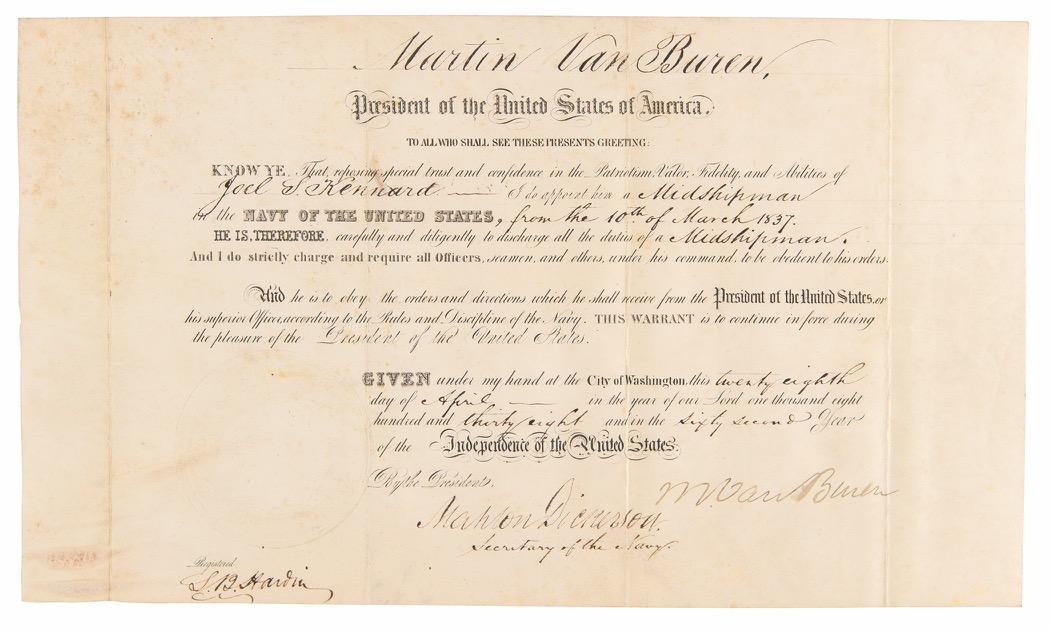 Martin Van Buren,
President of the United States of America.
TO ALL WHO SHALL SEE THESE PRESENTS GREETING:
KNOW YE, That, reposing special trust and confidence in the Patriotism, Valor, Fidelity, and Abilities of
Joel S. Kennard I do appoint him a Midshipman
in the NAVY OF THE UNITED STATES, from the 10th of March 1837.
HE IS, THEREFORE, carefully and diligently to discharge all the duties of a Midshipman.
And I do strictly charge and require all Officers, seamen, and others, under his command, to be obedient to his orders.
And he is to obey the orders and directions which he shall receive from the President of the United States, or
his superior Officer, according to the Rules and Discipline of the Navy. THIS WARRANT is to continue in force during
the pleasure of the President of the United States.
GIVEN under my hand at the City of Washington, this twenty eighth
day of April in the year of our Lord one thousand eight
hundred and thirty eight and in the Sixty second Year
of the Independence of the United States.
By the President,
M. Van Buren
Mahlon Dickerson.
Secretary of the Navy.
Registered
L. B. Hardin